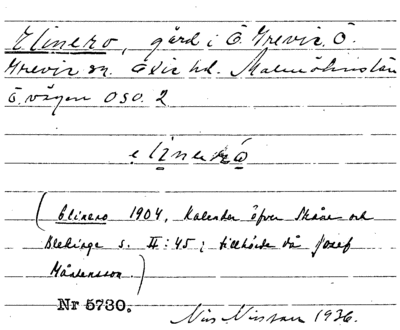 Elinero, gård i Ö. Grevie, Ö.
Grevie sn. Oxie hd. Malmöhus län
Ö. vägen OSO. 2
elinerō
(Elinero 1904, Kalender öfver Skåne och
Blekinge s. II:45; tillhörde då Josef
Mårtensson.)
Nr 5730.
Nils Nilsson 1936.